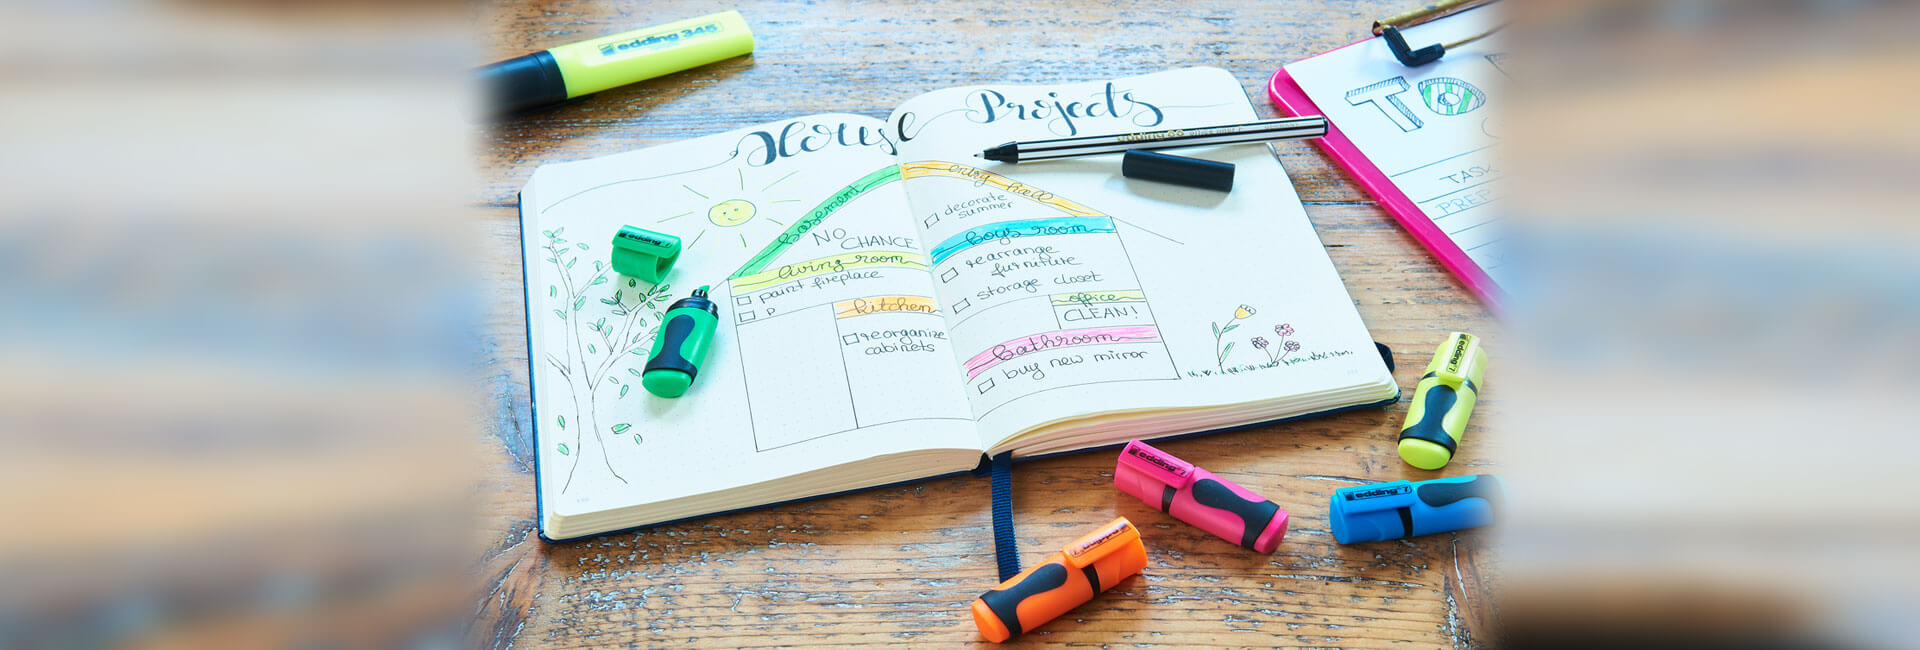 edding 345
House Projects
basement
NO
CHANCE
living room
paint fireplace
P
kitchen
reorganize
cabinets
entry hall
decorate
summer
boys room
rearrange
furniture
storage closet
office
CLEAN!
bathroom
buy new mirror
TO
TASK
PREP
edding
edding 7
edding 7
edding 7
edding 7